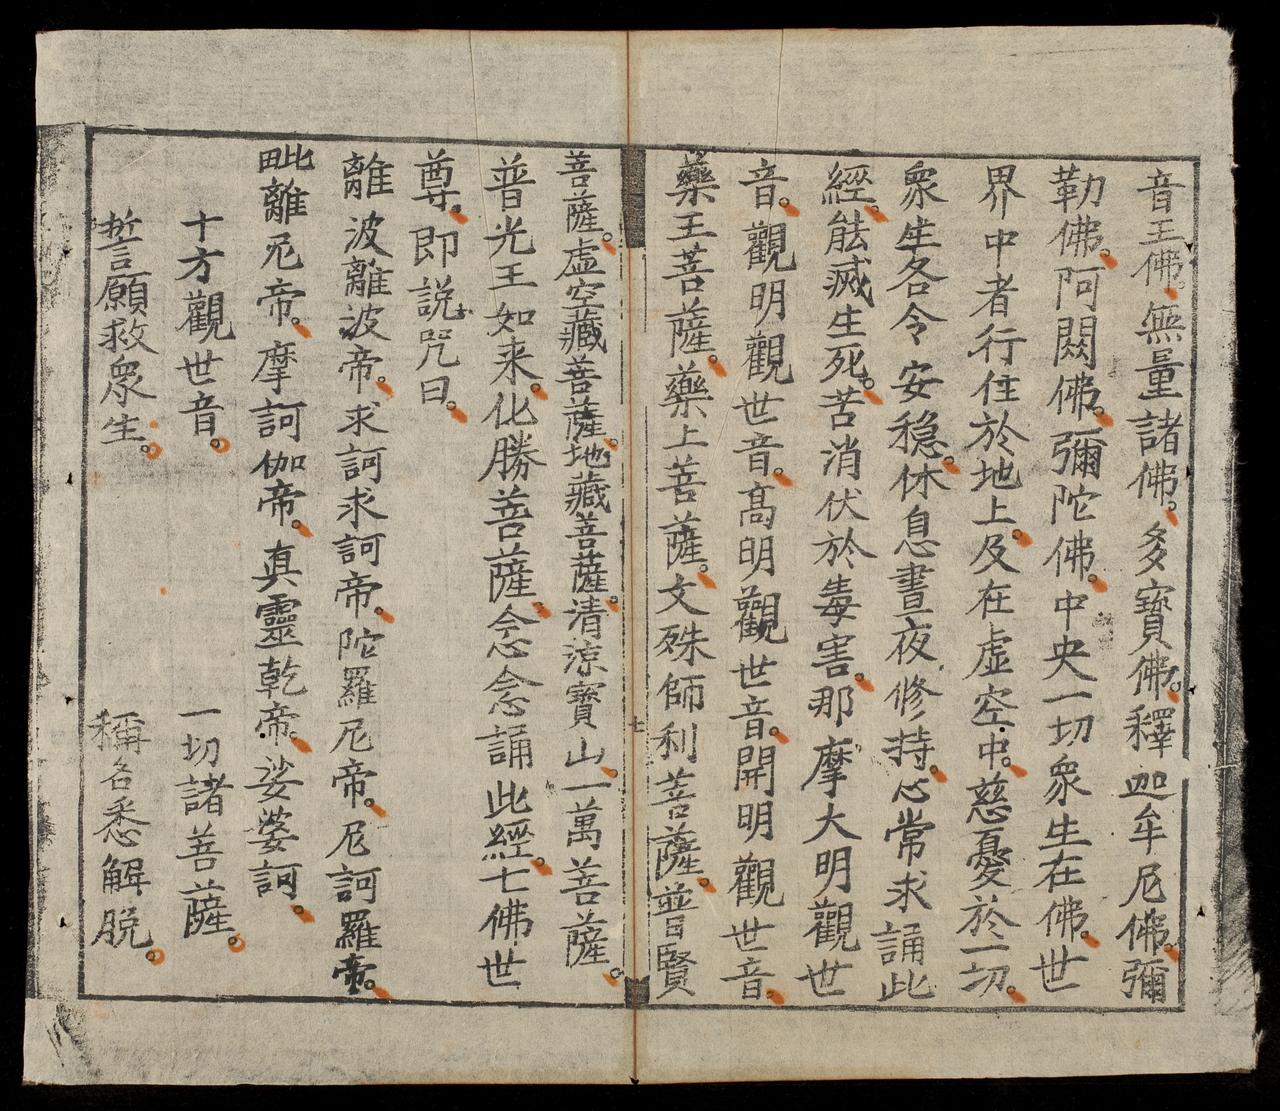 音王佛。無量諸佛。多寶佛。釋迦牟尼佛。彌
勒佛。阿閦佛。彌陀佛。中央一切衆生在佛。世
界中者行住於地上。及在虛空中。慈憂於一切。
衆生各令安穩。休息晝夜修持。心常求誦此
經。能滅生死。苦消伏於毒害。那摩大明觀世
音。觀明觀世音。高明觀世音。開明觀世音。
藥王菩薩。藥上菩薩。文殊師利菩薩。普賢
菩薩。虛空藏菩薩。地藏菩薩。清涼寶山。一萬菩薩。
普光王如来。化勝菩薩。念念誦此經。七佛世
尊。即説咒曰。
離波離波帝。求訶求訶帝。陀羅尼帝。尼訶羅帝。
毗離尼帝。摩訶伽帝。真靈乾帝。娑婆訶。
十方觀世音。一切諸菩薩。
誓願救衆生。稱名悉解脱。
七